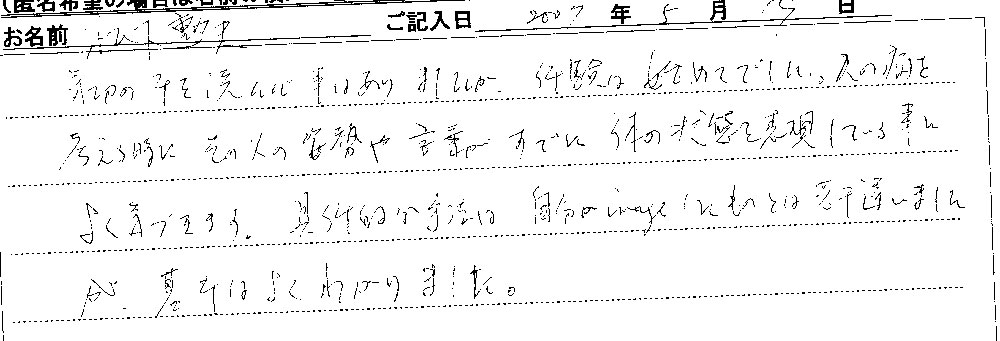 (匿名希望の場合は名前の横に
お名前 ご記入日 2007 年 5 月 日
の本を読んだ事はありましたが、体験は始めてでした。人の病を
考える時に その人の姿勢や言葉がすでに体の状態を表現している事に
よく気づきます。具体的な手法は 自分がimageしたものとは若干違いました
が、基本はよくわかりました。